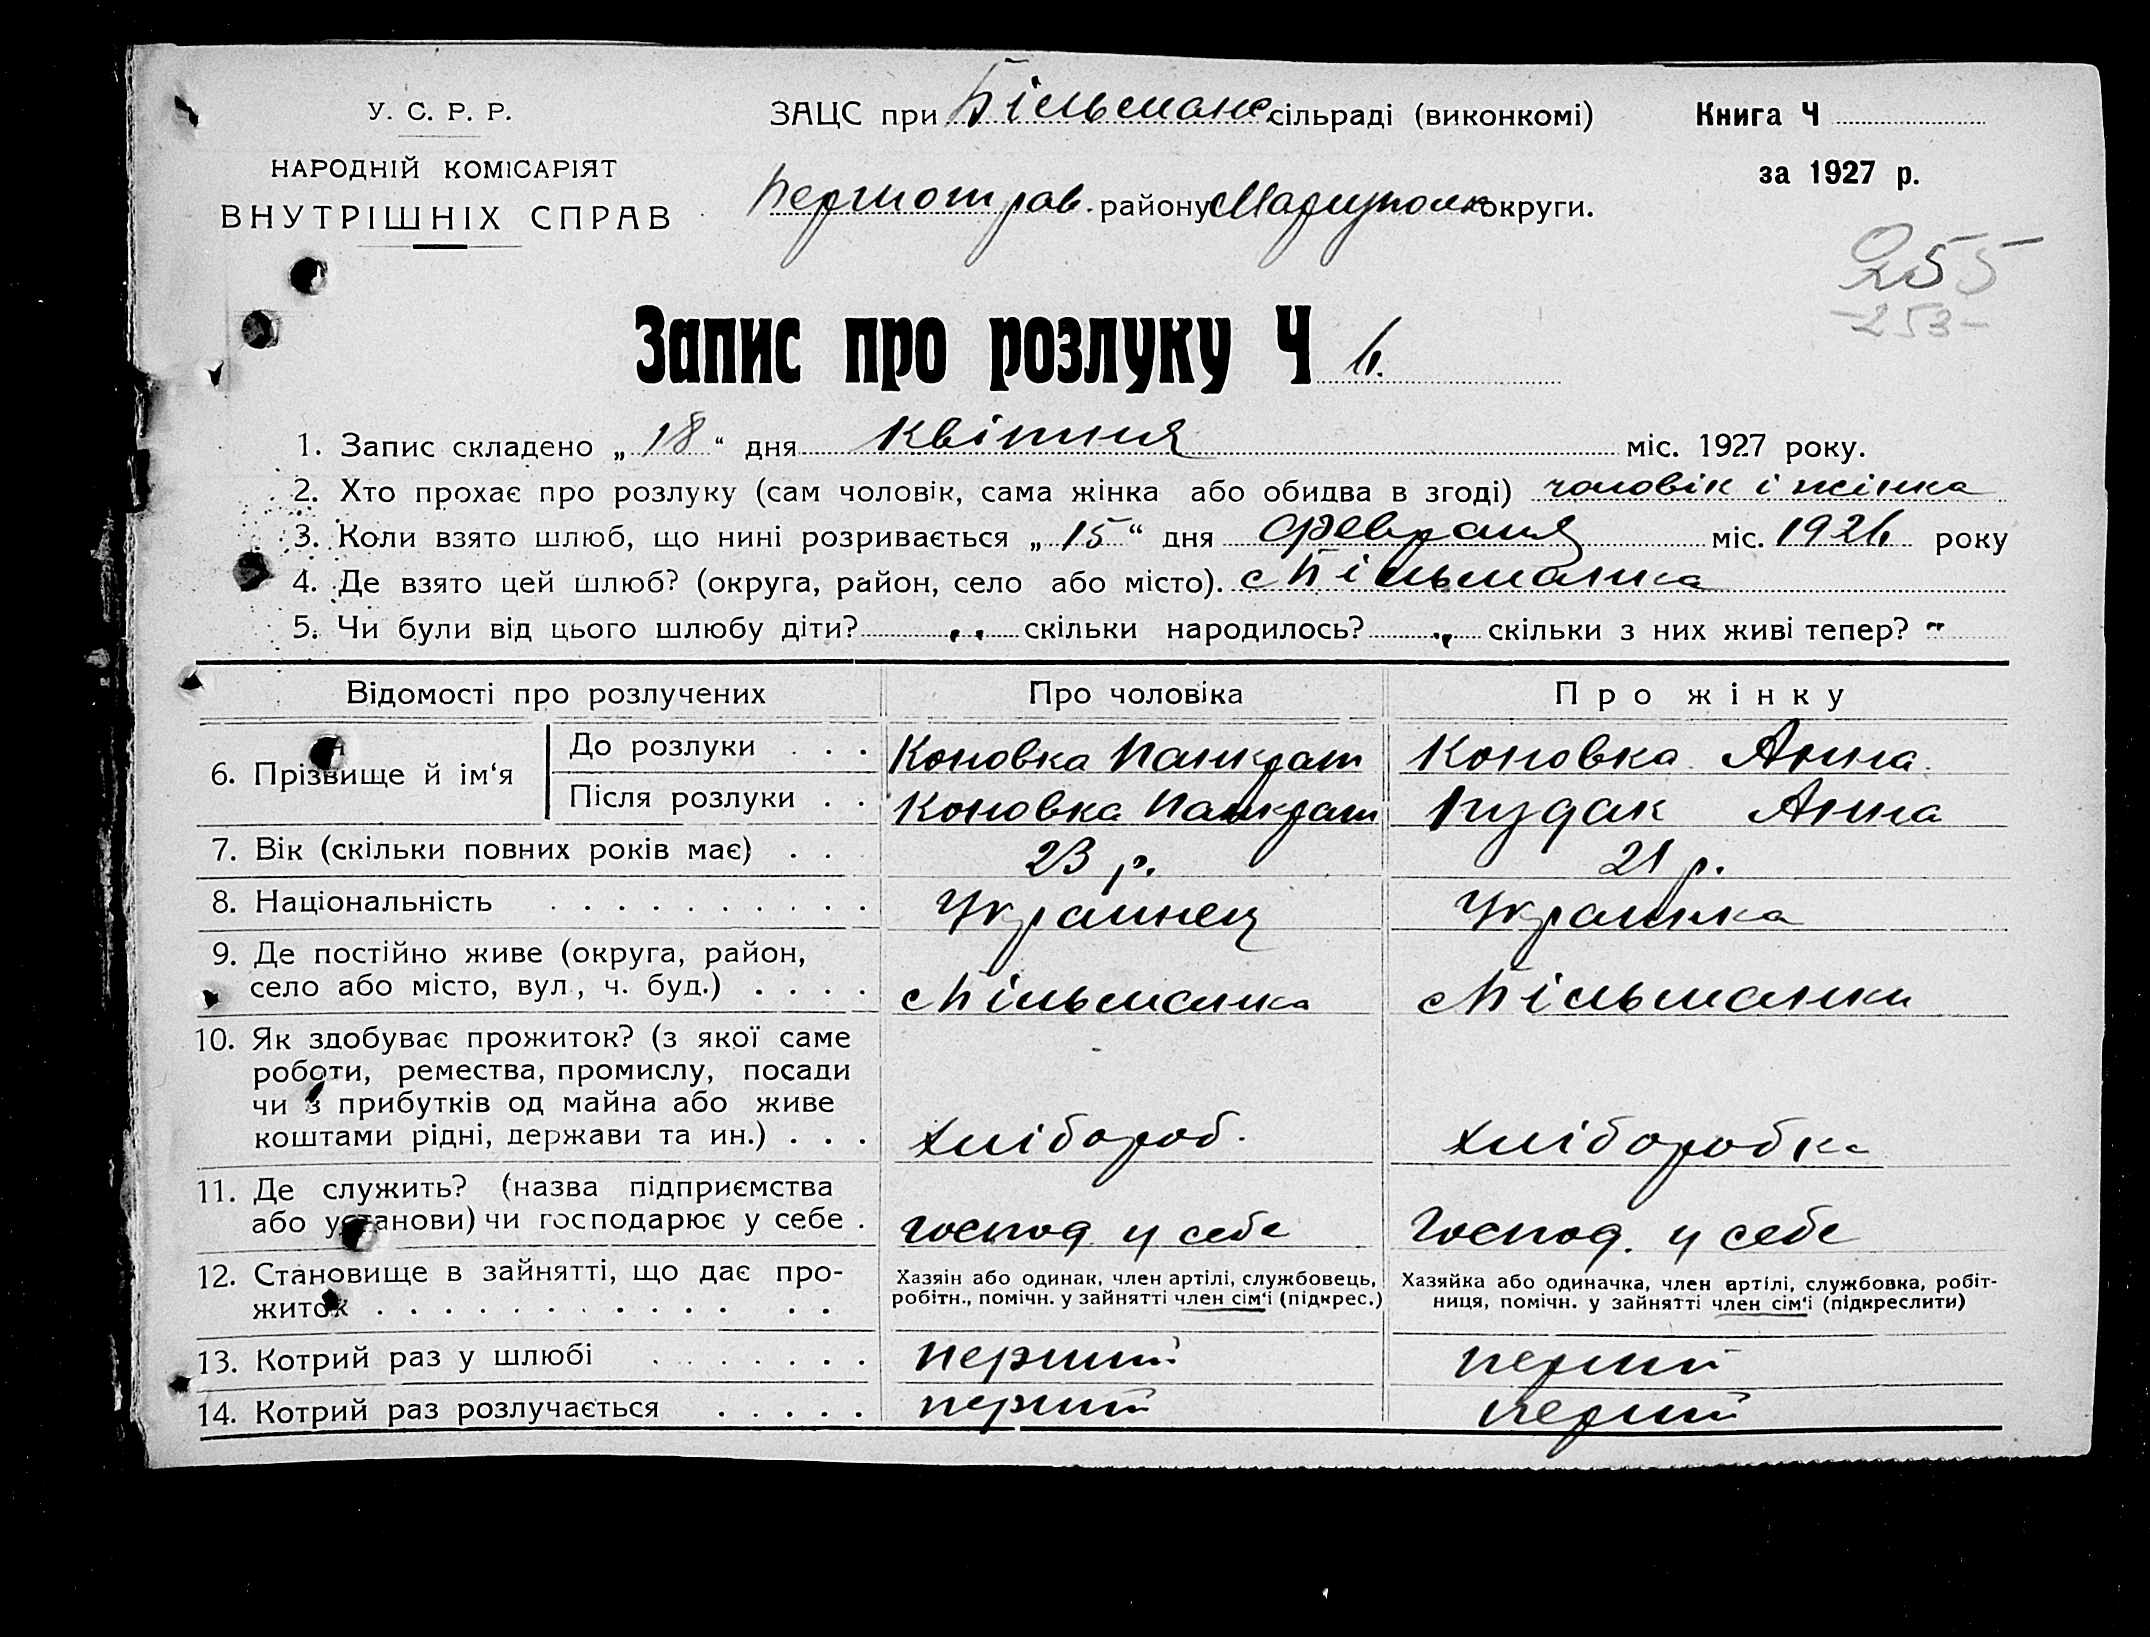 У. С. Р. Р.
НАРОДНІЙ КОМІСАРІЯТ
ВНУТРІШНІХ СПРАВ
ЗАЦС при Більманс. сільраді (виконкомі)
Першотрав. району Маріупольк округи.
Книга Ч
за 1927 р.
255
-253-
Запис про розлуку Ч 6.
1. Запис складено „ 18 “ дня квітния міс. 1927 року.
2. Хто прохає про розлуку (сам чоловік, сама жінка або обидва в згоді) чоловік і жінка
3. Коли взято шлюб, що нині розривається „ 15 “ дня февраля міс. 1926 року
4. Де взято цей шлюб? (округа, район, село або місто). с Більманка
5. Чи були від цього шлюбу діти? „ скільки народилось? „ скільки з них живі тепер? "
Відомості про розлучених Про чоловіка Про жінку
6. Прізвище й ім‘я
До розлуки . . . Коновка Панкрат Коновка Анна
Після розлуки . . Коновка Панкрат Пудак Анна
7. Вік (скільки повних років має) . . 23 р. 21 р.
8. Національність . . . . . . . . . . Украинец Украинка
9. Де постійно живе (округа, район,
село або місто, вул., ч. буд.) . . . . с Більманка с Більманки
10. Як здобуває прожиток? (з якої саме
роботи, ремества, промислу, посади
чи з прибутків од майна або живе
коштами рідні, держави та ин.) . . . хлібороб. хліборобка
11. Де служить? (назва підприємства
або установи) чи господарює у себе . господ у себе Господ. у себе
12. Становище в зайнятті, що дає про-
житок . . . . . . . . . . . . . .
Хазяін або одинак, член артілі, службовець,
робітн., помічн. у зайнятті член сім‘ї (підкрес.)
Хазяйка або одиначка, член артілі, службовка, робіт-
ниця, помічн. у зайнятті член сім‘ї (підкреслити)
13. Котрий раз у шлюбі . . . . . . . перший перший
14. Котрий раз розлучається . . . . . перший перший